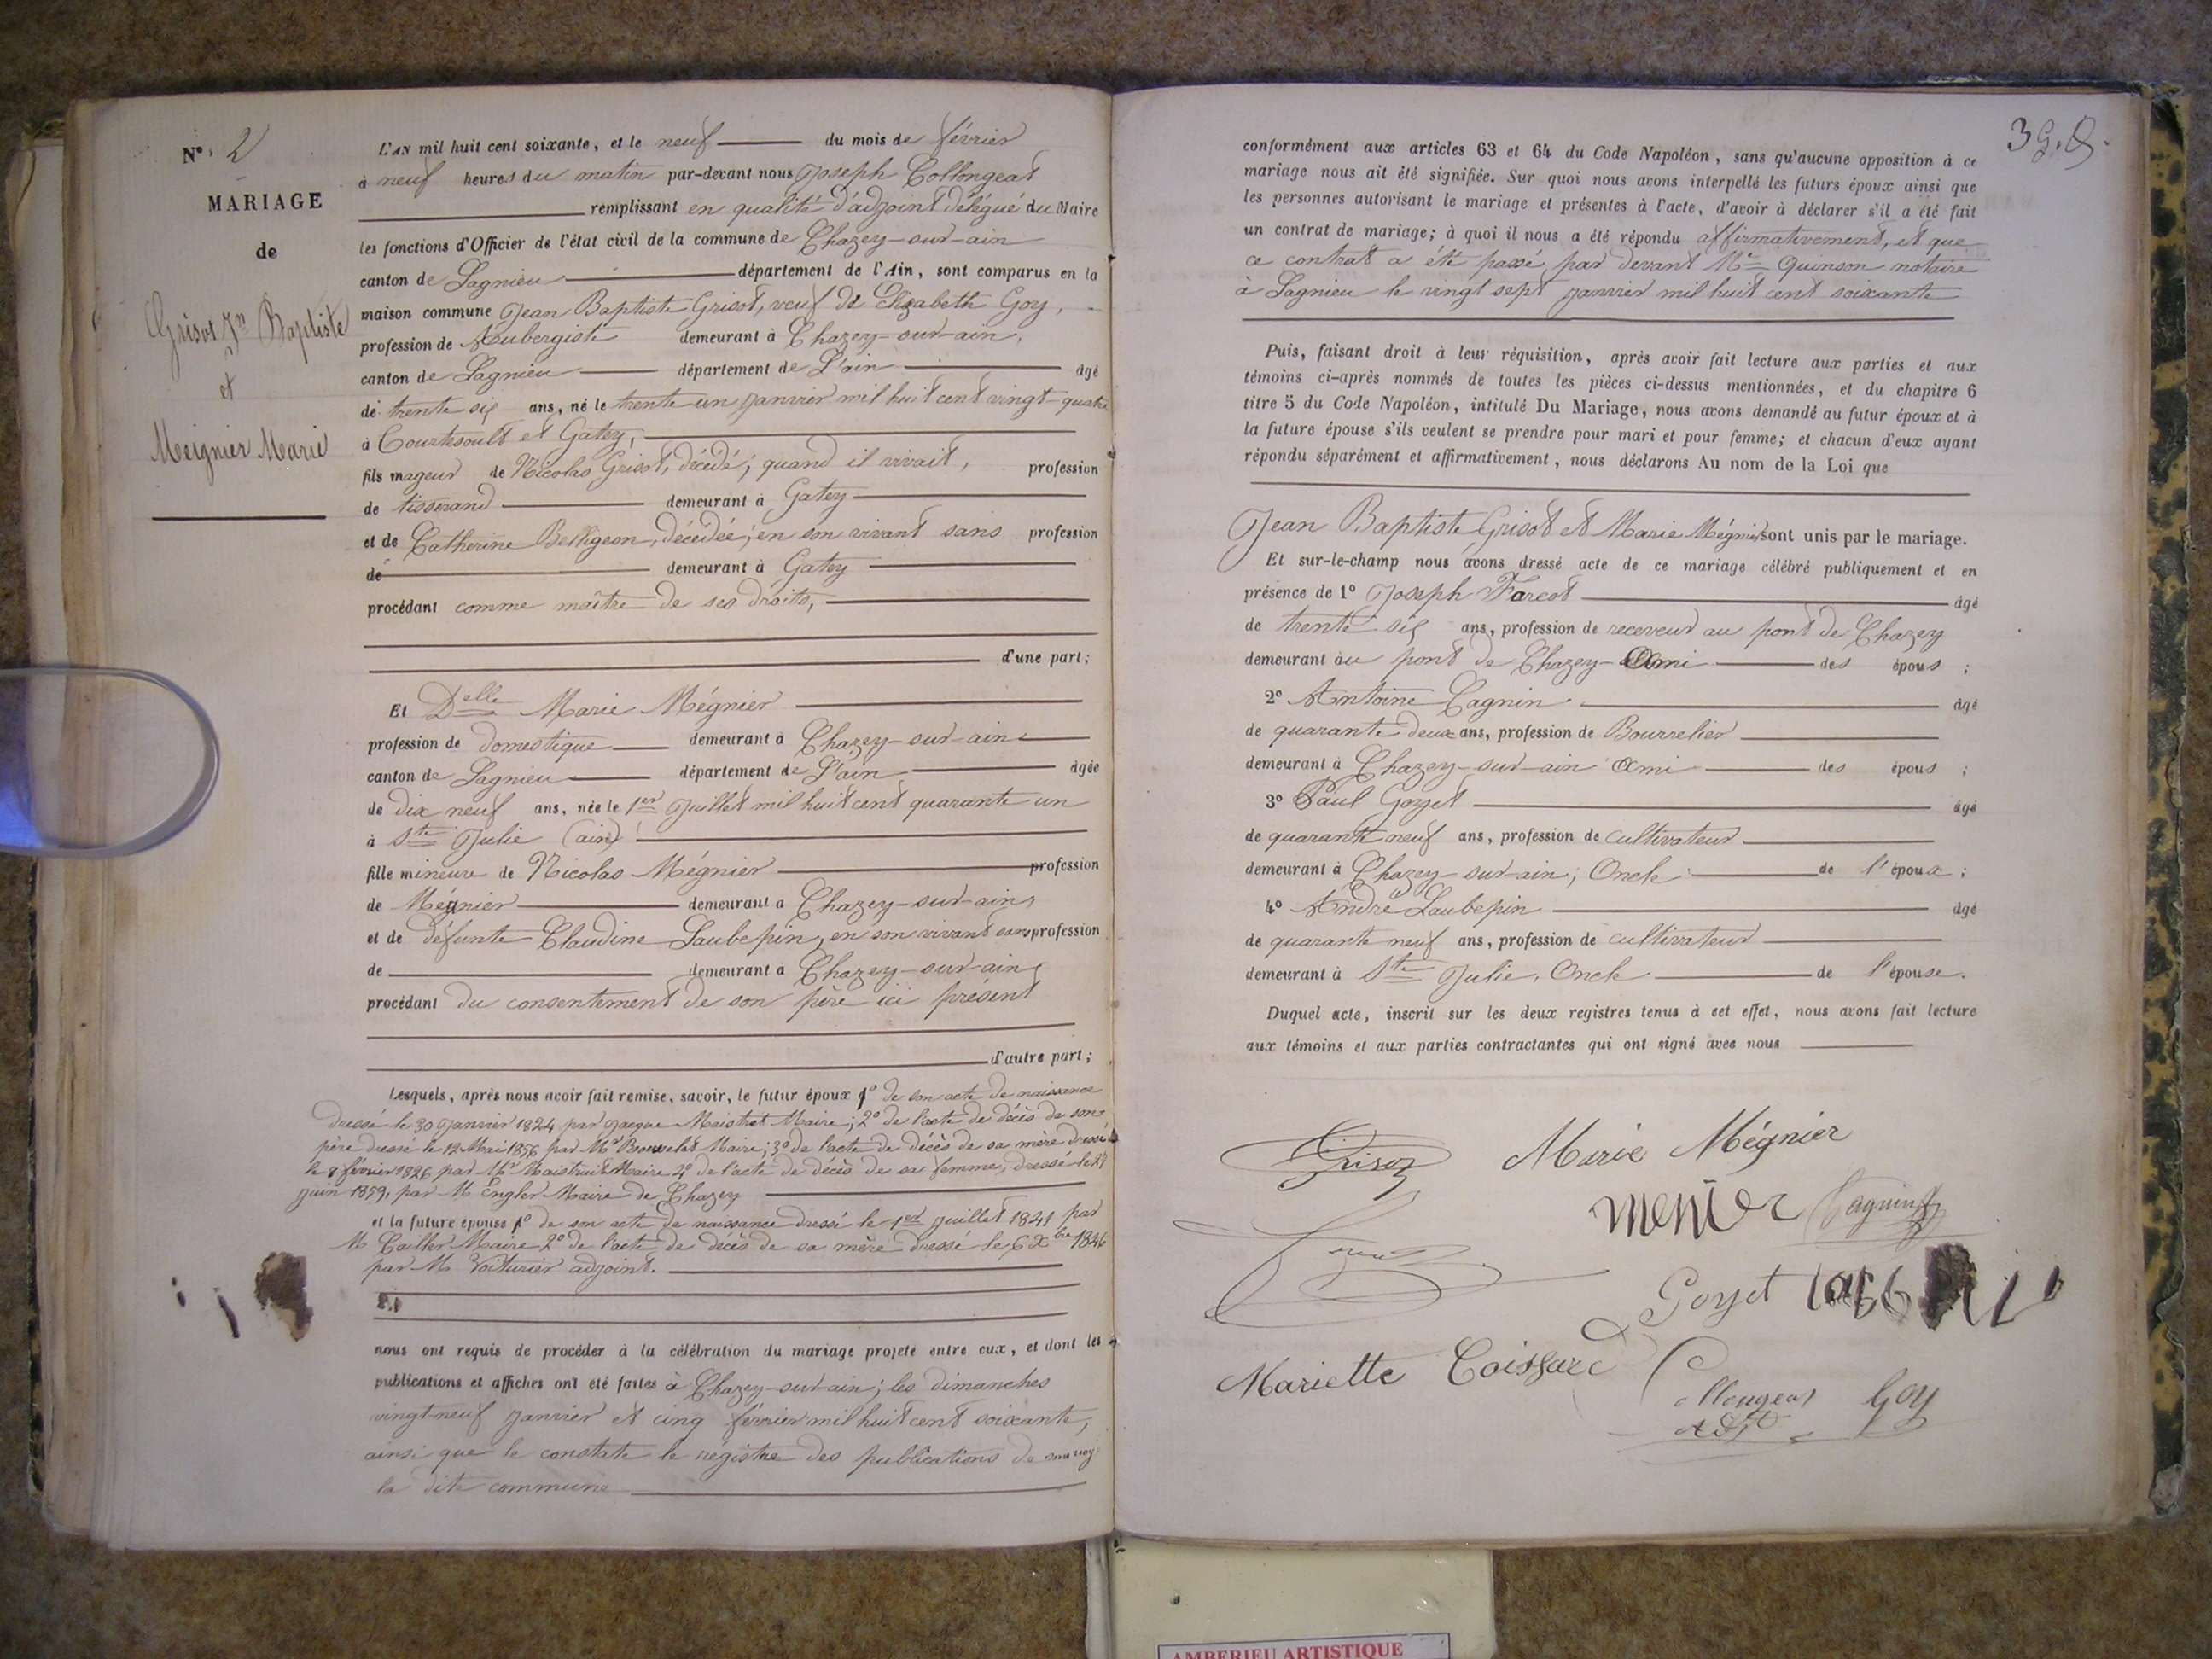 N° 2
MARIAGE
de
Grisot Jn Baptiste
et
Meignier Marie
L'AN mil huit cent soixante, et le neuf du mois de février
à neuf heures du matin par-devant nous Joseph Collongeat
remplissant en qualité d'adjoint délégué du Maire
les fonctions d'Officier de l'état civil de la commune de Chazey-sur-ain
canton de Lagnieu département de l'Ain, sont comparus en la
maison commune Jean Baptiste Grisot, veuf de Elisabeth Goy,
profession de Aubergiste demeurant à Chazey-sur-ain,
canton de Lagnieu département de L'ain âgé
de trente six ans, né le trente un janvier mil huit cent vingt-quatre
à Courtesoult et Gatey,
fils mageur de Nicolas Grisot, décédé; quand il vivait, profession
de tisserand demeurant à Gatey
et de Catherine Belligeon, décédée; en son vivant sans profession
de demeurant à Gatey
procédant comme maître de ses droits,
d'une part;
Et Delle Marie Mégnier
profession de domestique demeurant à Chazey-sur-ain
canton de Lagnieu département de L'ain âgée
de dix neuf ans, née le 1er Juillet mil huit cent quarante un
à Ste Julie (ain)
fille mineure de Nicolas Mégnier profession
de Mégnier demeurant à Chazey-sur-ain,
et de défunte Claudine Laubepin, en son vivant sans profession
de demeurant à Chazey-sur-ain,
procédant du consentement de son père ici présent
d'autre part;
Lesquels, après nous avoir fait remise, savoir, le futur époux 1° de son acte de naissance
dressé le 30 Janvier 1824 par Jacque Maistret Maire; 2° de l'acte de décès de son
père dressé le 12 Mai 1856 par Mr Maire; 3° de l'acte de décès de sa mère dressé
le 8 février 1826 par Mr Maire 4° de l'acte de décès de sa femme, dressé le 27
juin 1859, par M Engler Maire de Chazey
et la future épouse 1° de son acte de naissance dressé le 1er juillet 1841 par
M Cailler Maire 2° de l'acte de décès de sa mère dressé le 6 Xbre 1846
par M Voiturier adjoint.
nous ont requis de procéder à la célébration du mariage projeté entre eux, et dont les
publications et affiches ont été faites à Chazey-sur-ain; les dimanches
vingt-neuf janvier et cinq février mil huit cent soixante,
ainsi que le constate le régistre des publications de
la dite commune
39.
conformément aux articles 63 et 64 du Code Napoléon, sans qu'aucune opposition à ce
mariage nous ait été signifiée. Sur quoi nous avons interpellé les futurs époux ainsi que
les personnes autorisant le mariage et présentes à l'acte, d'avoir à déclarer s'il a été fait
un contrat de mariage; à quoi il nous a été répondu affirmativement, et que
ce contrat a été passé par devant Me Quinson notaire
à Lagnieu le vingt sept janvier mil huit cent soixante
Puis, faisant droit à leur réquisition, après avoir fait lecture aux parties et aux
témoins ci-après nommés de toutes les pièces ci-dessus mentionnées, et du chapitre 6
titre 5 du Code Napoléon, intitulé Du Mariage, nous avons demandé au futur époux et à
la future épouse s'ils veulent se prendre pour mari et pour femme; et chacun d'eux ayant
répondu séparément et affirmativement, nous déclarons Au nom de la Loi que
Jean Baptiste Grisot et Marie Mégnier sont unis par le mariage.
Et sur-le-champ nous avons dressé acte de ce mariage célébré publiquement et en
présence de 1° Joseph Farcot âgé
de trente six ans, profession de receveur au pont de Chazey
demeurant au pont de Chazey-Ami des épous;
2° Antoine Cagnin âgé
de quarante deux ans, profession de Bourrelier
demeurant à Chazey-sur-ain Ami des épous;
3° Paul Goyet âgé
de quarante neuf ans, profession de cultivateur
demeurant à Chazey-sur-ain; Oncle de l'épouse;
4° André Laubepin âgé
de quarante neuf ans, profession de cultivateur
demeurant à Ste Julie, Oncle de l'épouse.
Duquel acte, inscrit sur les deux registres tenus à cet effet, nous avons fait lecture
aux témoins et aux parties contractantes qui ont signé avec nous
Grisoz Marie Mégnier
menier Cagnin
Goyet
Mariette Coissard
Collongeat Goy
adjt
AMBERIEU ARTISTIQUE